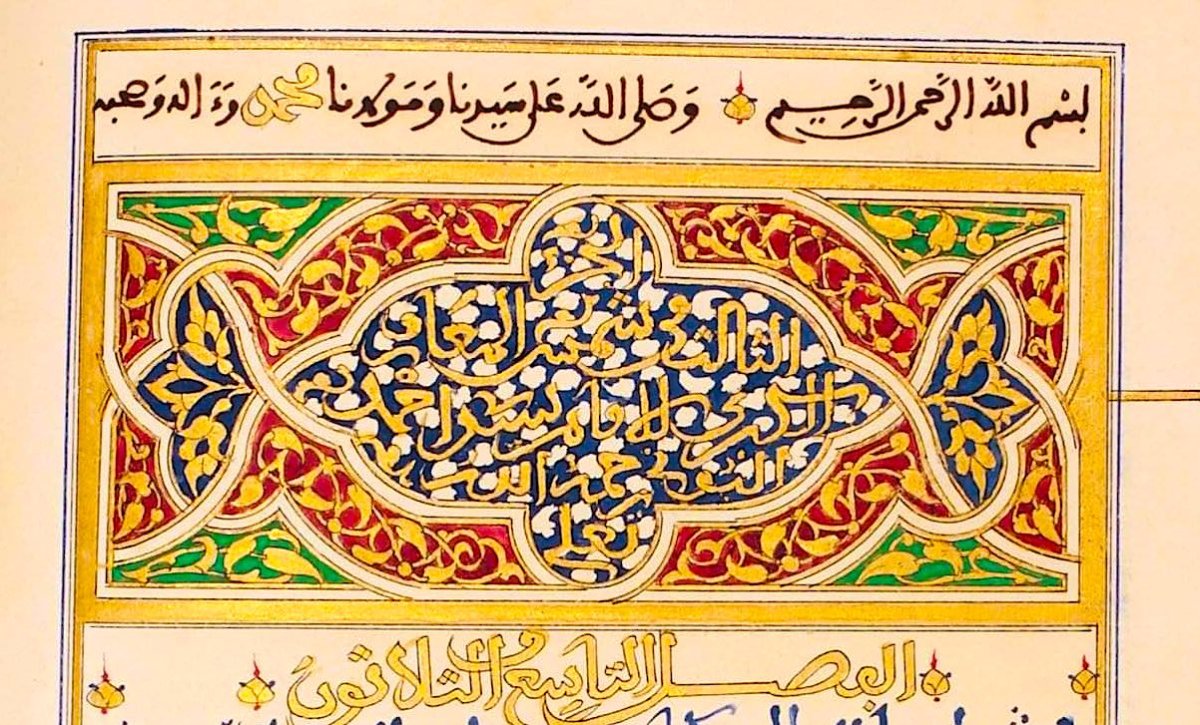 بسم الله الرحمن الرحيم وصلى الله على سيدنا ومولانا محمد وءاله وصحبه
الجزء
الثالث من شمس المعارف
الكبرى للامام سيدي احمد
البوني رحمه الله
تعلى
الفصل التاسع والثلاثون